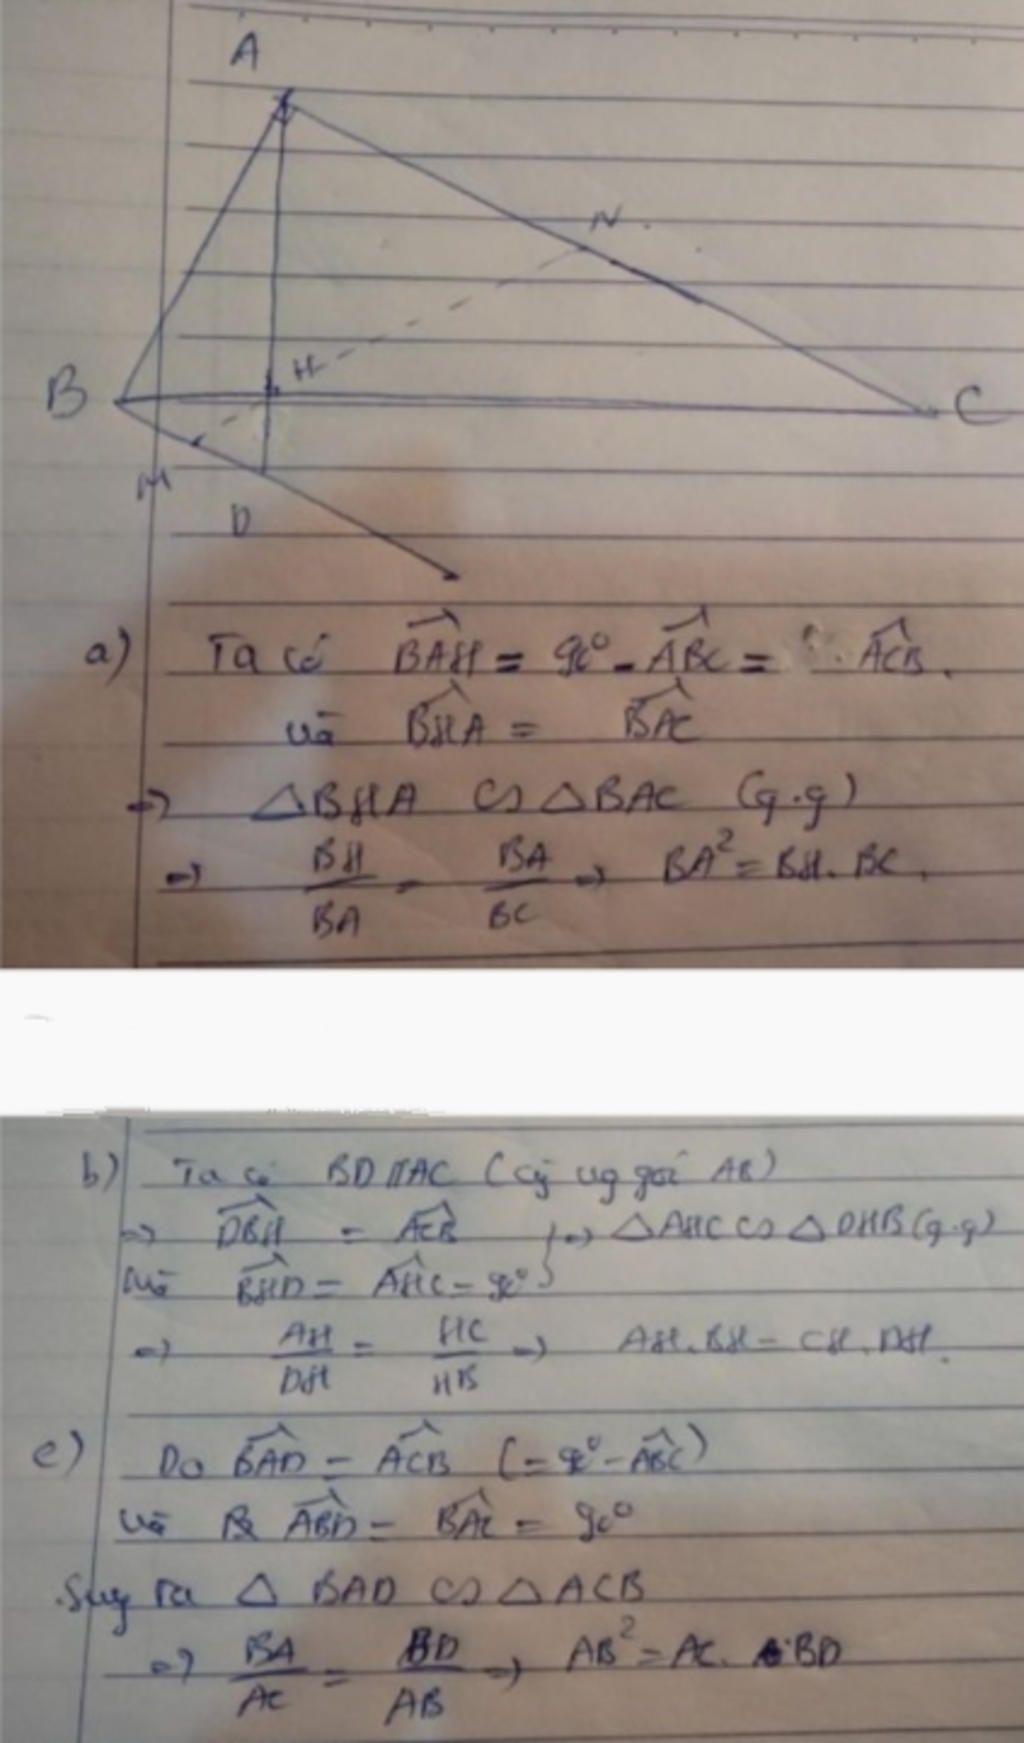 A
N
H
B
C
M
D
a) Ta có $\widehat{BAH}$ = 90° - $\widehat{ABC}$ = $\widehat{ACB}$.
và $\widehat{BHA}$ = $\widehat{BAC}$
=> △BHA ∽ △BAC (g.g)
=> $\frac{BH}{BA}$ = $\frac{BA}{BC}$ => BA² = BH. BC.
b) Ta có BD // AC (cg vg gói AB)
=> $\widehat{DBH}$ = $\widehat{ACB}$ } => △AHC ∽ △DHB (g.g)
Mà $\widehat{BHD}$ = $\widehat{AHC}$ = 90°
=> $\frac{AH}{DH}$ = $\frac{HC}{HB}$ => AH.BH = CH.DH.
c) Do $\widehat{BAD}$ = $\widehat{ACB}$ (= 90° - $\widehat{ABC}$)
và $\widehat{ABD}$ = $\widehat{BAC}$ = 90°
Suy ra △ BAD ∽ △ ACB
=> $\frac{BA}{AC}$ = $\frac{BD}{AB}$ => AB² = AC. BD